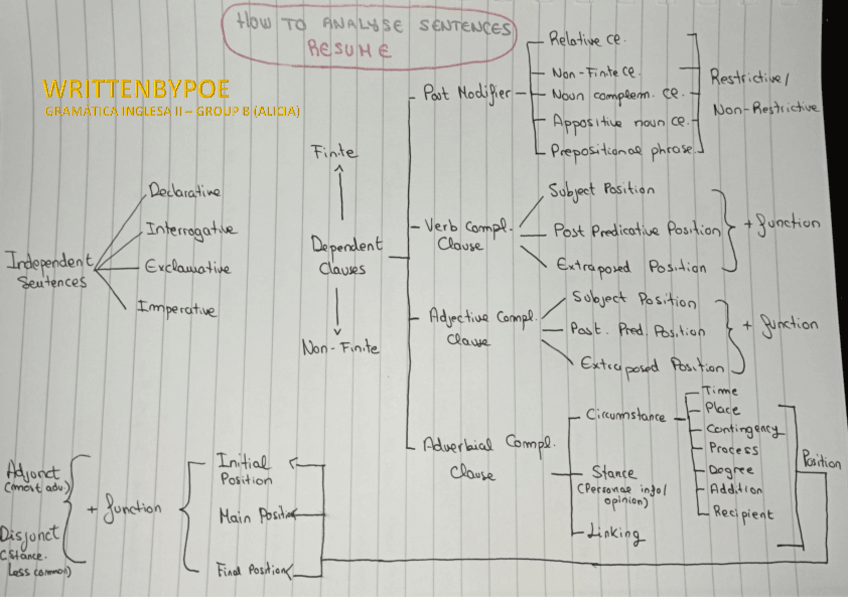 HOW TO ANALYSE SENTENCES
RESUME
WRITTENBYPOE
GRAMÁTICA INGLESA II – GROUP B (ALICIA)
Independent
Sentences
Declarative
Interrogative
Exclamative
Imperative
Finite
Dependent
Clauses
Non-Finite
Post Modifier
Relative ce.
Non-Finte ce.
Noun complem. ce.
Appositive noun ce.
Prepositional phrase.
Restrictive/
Non-Restrictive
Verb Compl.
Clause
Subject Position
Post Predicative Position
Extraposed Position
+ function
Adjective Compl.
Clause
Subject Position
Post. Pred. Position
Extraposed Position
+ function
Adverbial Compl.
Clause
Circumstance
Time
Place
Contingency
Process
Degree
Addition
Recipient
Stance
(Personae info/
opinion)
Linking
Position
Initial
Position
Main Position
Final Position
+ function
Adjunct
(most adv.)
Disjunct
(Stance.
Less common)